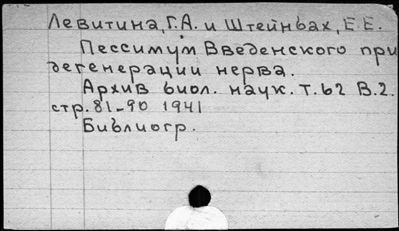 Левитина, Г.А. и Штейнбах, Е.Е.
Пессимум Введенского при
дегенерации нерва.
Архив биол. наук. т.62 В.2.
стр.81-90 1941
Библиогр.